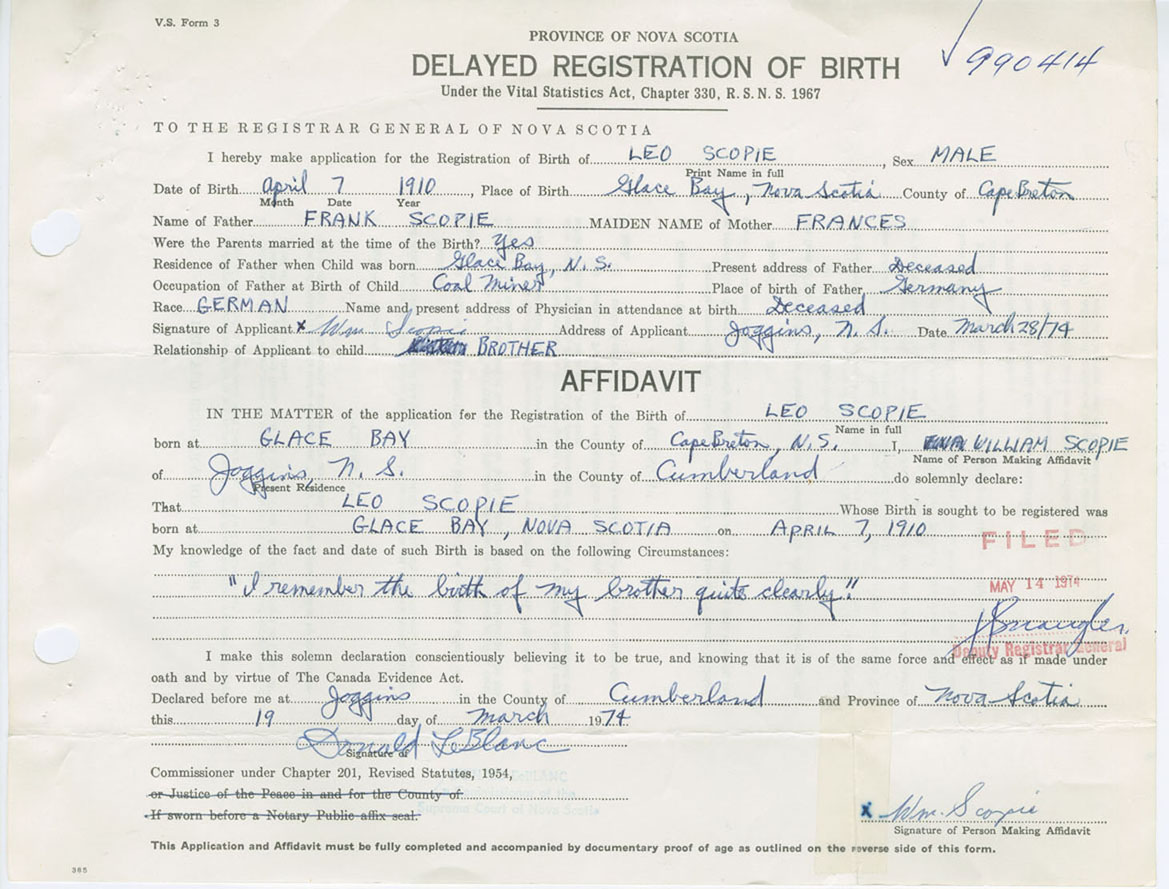 V.S. Form 3
PROVINCE OF NOVA SCOTIA
DELAYED REGISTRATION OF BIRTH
990414
Under the Vital Statistics Act, Chapter 330, R.S.N.S. 1967
TO THE REGISTRAR GENERAL OF NOVA SCOTIA
I hereby make application for the Registration of Birth of LEO SCOPIE, Sex MALE
Print Name in full
Date of Birth April 7 1910, Place of Birth Glace Bay, Nova Scotia County of Cape Breton
Month Date Year
Name of Father FRANK SCOPIE MAIDEN NAME of Mother FRANCES
Were the Parents married at the time of the Birth? Yes
Residence of Father when Child was born Glace Bay, N.S. Present address of Father Deceased
Occupation of Father at Birth of Child Coal Miner Place of birth of Father Germany
Race GERMAN Name and present address of Physician in attendance at birth Deceased
Signature of Applicant x Wm Scopie Address of Applicant Joggins, N.S. Date March 28/74
Relationship of Applicant to child BROTHER
AFFIDAVIT
IN THE MATTER of the application for the Registration of the Birth of LEO SCOPIE
Name in full
born at GLACE BAY in the County of Cape Breton, N.S. I, WILLIAM SCOPIE
Name of Person Making Affidavit
of Joggins, N.S. in the County of Cumberland do solemnly declare:
Present Residence
That LEO SCOPIE Whose Birth is sought to be registered was
born at GLACE BAY, NOVA SCOTIA on APRIL 7, 1910
FILED
My knowledge of the fact and date of such Birth is based on the following Circumstances:
"I remember the birth of my brother quite clearly."
MAY 14 1974
Deputy Registrar General
I make this solemn declaration conscientiously believing it to be true, and knowing that it is of the same force and effect as if made under
oath and by virtue of The Canada Evidence Act.
Declared before me at Joggins in the County of Cumberland and Province of Nova Scotia
this 19 day of March 1974
Donald LeBlanc
Signature of
Commissioner under Chapter 201, Revised Statutes, 1954,
or Justice of the Peace in and for the County of
Supreme Court of Nova Scotia
If sworn before a Notary Public affix seal.
x Wm. Scopie
Signature of Person Making Affidavit
This Application and Affidavit must be fully completed and accompanied by documentary proof of age as outlined on the reverse side of this form.
365